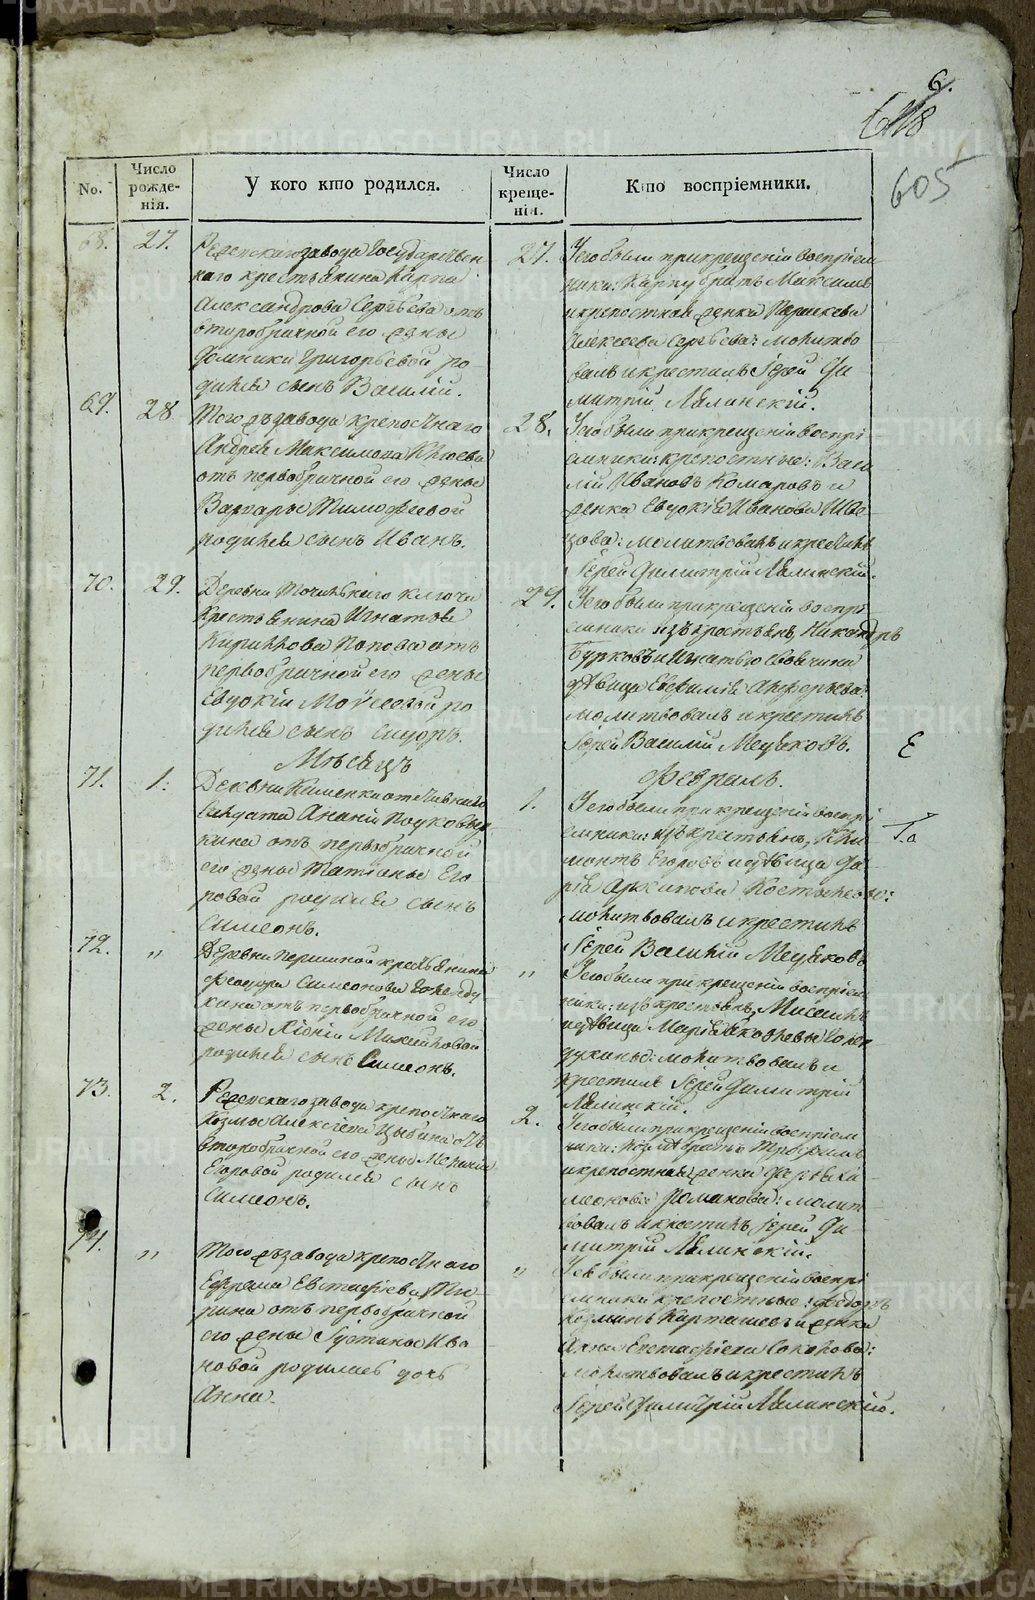 6.
605
No.
Число рожде- нія.
У кого кто родился.
Число креще- нія.
Кто воспріемники.
68. 27.
Режевскаго завода Государствен
наго крестьянина Карпа
Александрова Сергѣева отъ
второбрачной его жены
Домники Григорьевой ро
дился сынъ Василій.
27.
У его были при крещеніи воспріем
ники: Карпу братъ Максимъ
и крепостная женка Параскева
Алексеева Сергѣева: молитво
валъ и крестилъ Іерей Ди
митрій Лялинскій.
69. 28
Того жъ завода крепостнаго
Андрея Максимова
отъ первобрачной его жены
Варвары Тимофеевой
родился сынъ Иванъ.
28.
У его были при крещеніи воспрі
емники: крепостные: Васи
лій Ивановъ Комаровъ и
женка Евдокія Иванова Шве
цова: молитвовалъ и крестилъ
Іерей Димитрій Лялинскій.
70. 29.
Деревни Точильнаго ключа
Крестьянина Игнатія
Кирилова Попова отъ
первобрачной его жены
Евдокіи Моѵсеевой ро
дился сынъ Сидоръ.
29.
У его были при крещеніи воспрі
емники изъ крестьянъ Никандръ
Бурковъ и
дѣвица Евѳимія
молитвовалъ и крестилъ
Іерей Василій Медяковъ.
Е
Мѣсяцъ Февраль.
71. 1.
Деревни Каменки отставнаго
Салдата Ананіи Подковыр
кина отъ первобрачной
его жены Татіаны Его
ровой родился сынъ
Симеонъ.
1.
У его были при крещеніи воспрі
емники изъ крестьянъ, Кли
монтъ Егоровъ и дѣвица Да
рія
молитвовалъ и крестилъ
Іерей Василій Медяковъ
72. "
Деревни Першиной крестьянина
Феодора Симеонова Голенду
хина отъ первобрачной его
жены Ксеніи Михайловой
родился сынъ Симеонъ.
"
У его были при крещеніи воспріем
ники: изъ крестьянъ,
и дѣвица Марія Яковлева Голен
духины: молитвовалъ и
крестилъ Іерей Димитрій
Лялинскій.
73. 2.
Режевскаго завода крепостнаго
Козмы Алексѣева Цыбина отъ
второбрачной его жены
Егоровой родился сынъ
Симеонъ.
2.
У его были при крещеніи воспріем
ники: братъ Трофимъ
и крепостная женка Дарья Си
меонова Романова: молит
вовалъ и крестилъ Іерей Ди
митрій Лялинскій.
74. "
Того жъ завода крепостнаго
Ефрема Евстафіева
отъ первобрачной
его жены Іустины Ива
новой родилась дочь
Анна.
"
У ея были при крещеніи воспрі
емники крепостные: Федоръ
Козминъ Карташевъ и женка
Анна Евстафіева Соколова:
молитвовалъ и крестилъ
Іерей Димитрій Лялинскій.
METRIKI.GASO-URAL.RU